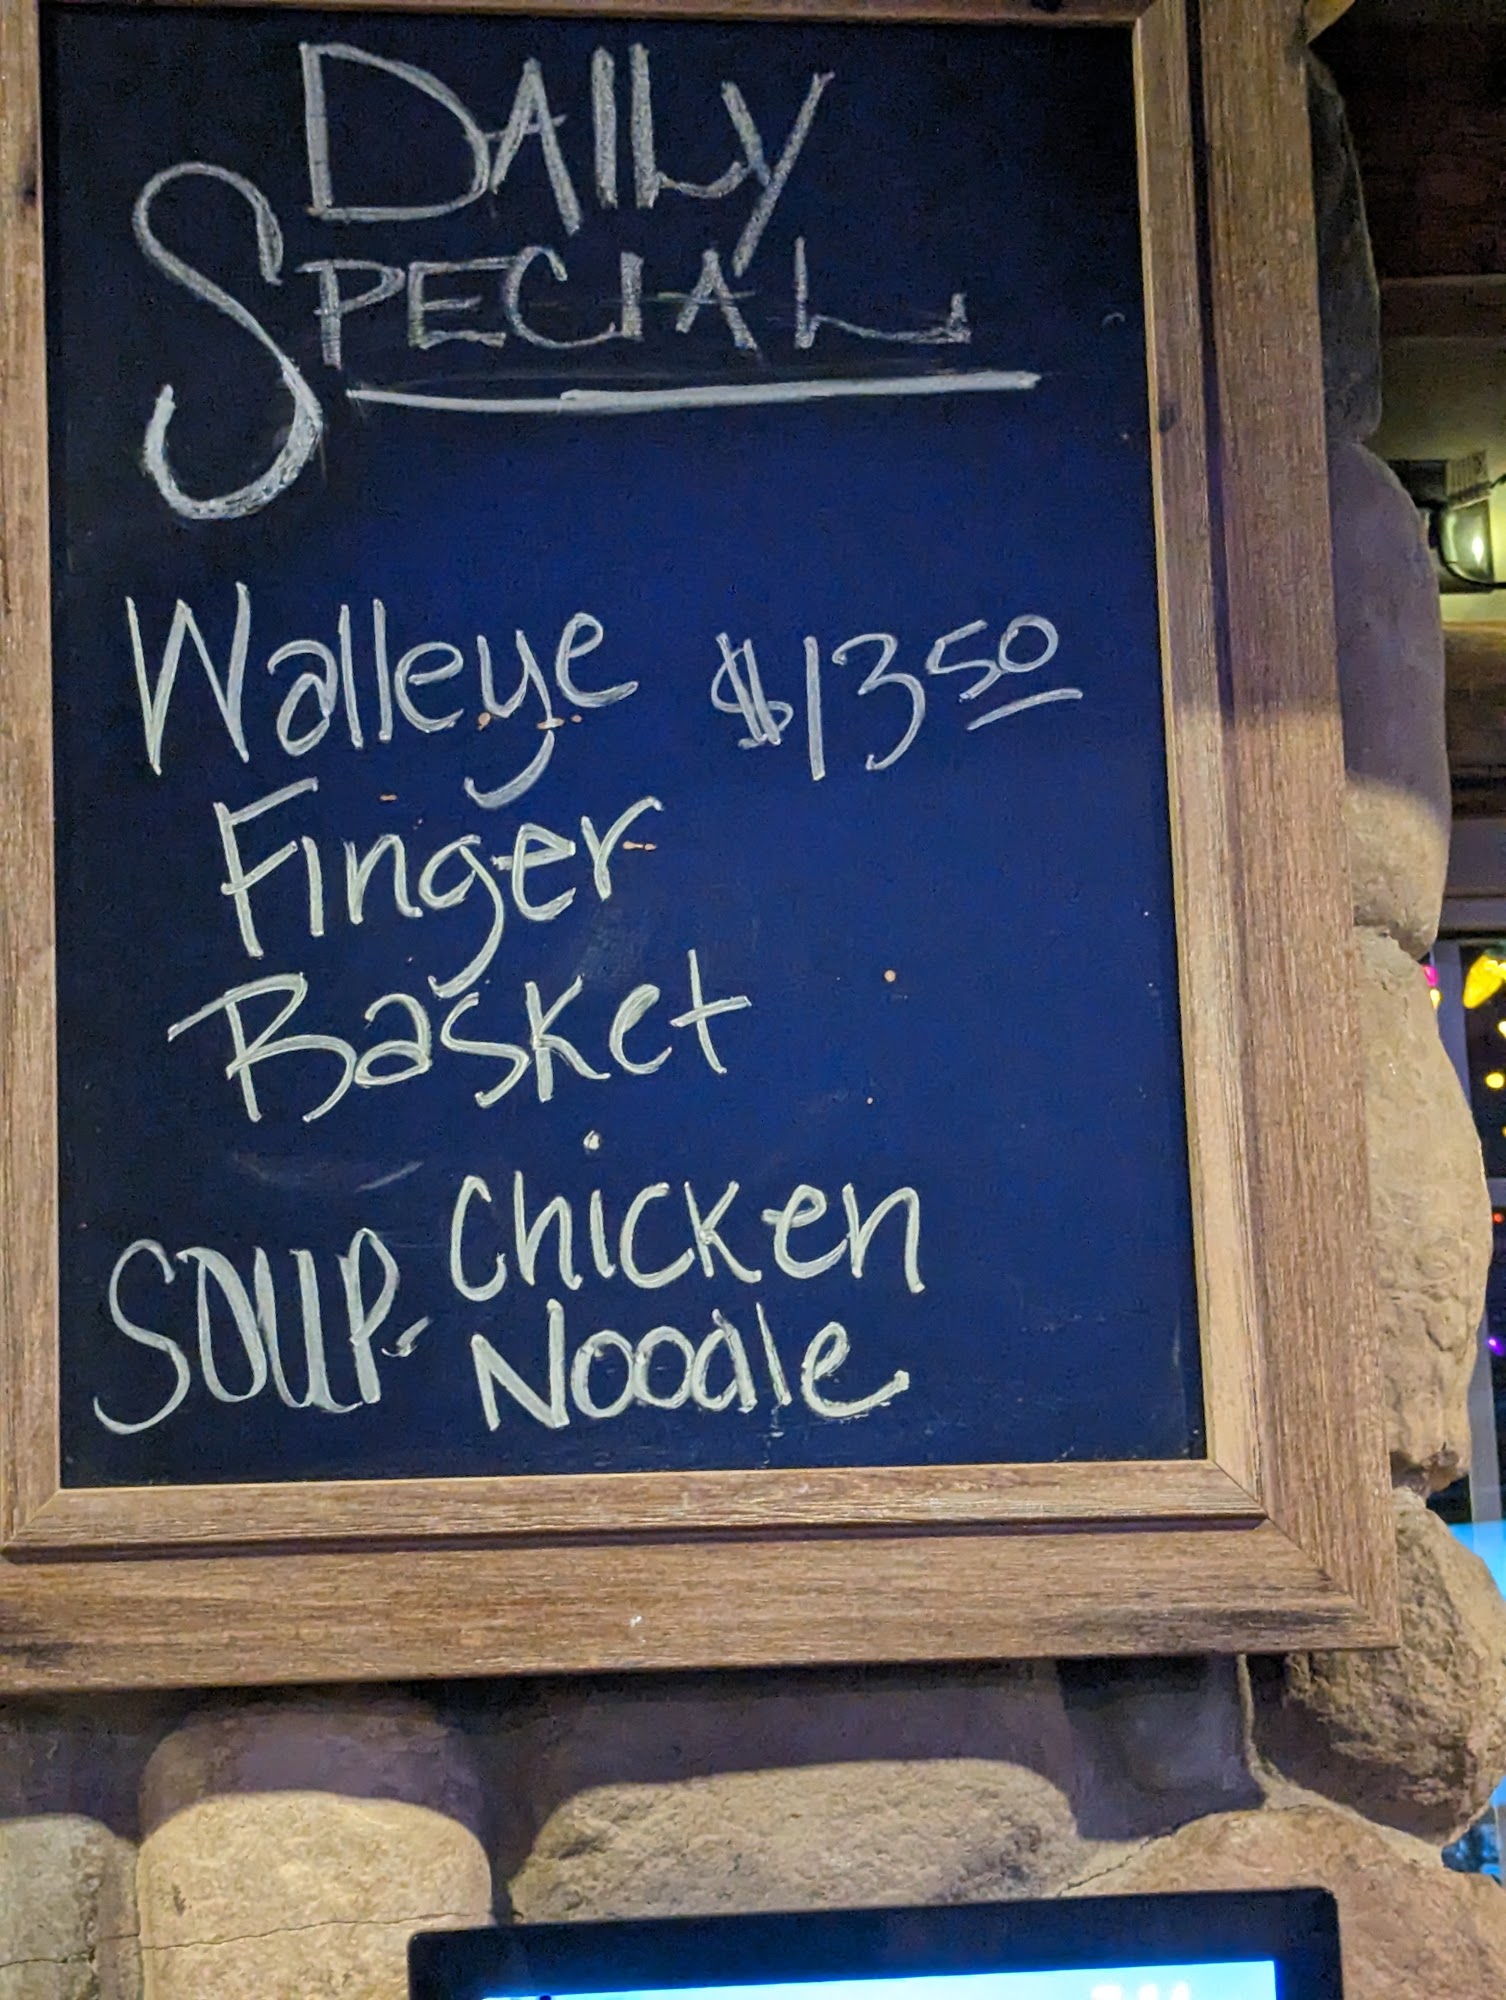 DAILY
SPECIAL
Walleye $13.50
Finger
Basket
SOUP- Chicken
Noodle